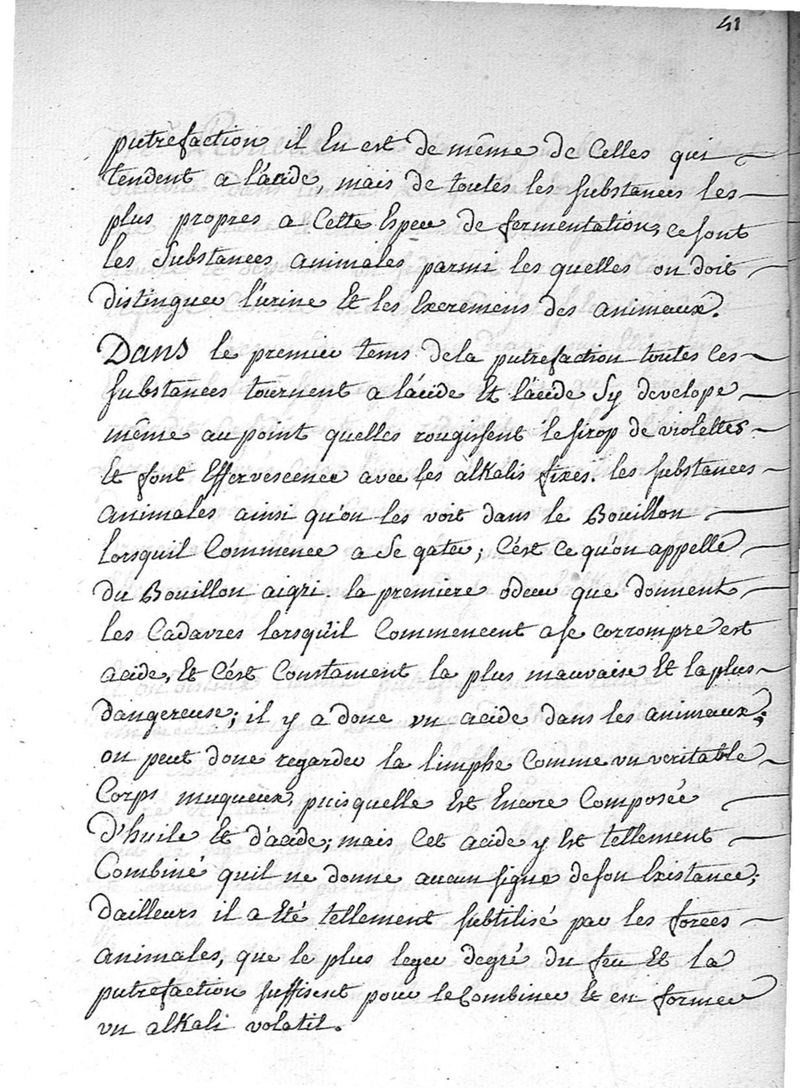 41
putrefaction il en est de même de celles qui
tendent a l'acide, mais de toutes les substances les
plus propres a cette Espece de fermentation, ce sont
les Substances animales parmi les quelles on doit
distinguer l'urine Et les Excremens des animaux.
Dans le premier tems de la putrefaction toutes ces
substances tournent a l'acide Et l'acide Sy develope
même au point quelles rougissent le sirop de violettes
Et font Effervescence avec les alkalis fixes. les substances
animales ainsi qu'on les voit dans le Bouillon
lorsquil Commence a se gater; C'est ce qu'on appelle
du Bouillon aigri. la premiere odeur que donnent
les Cadavres lorsqu'il Commencent a se corrompre est
acide, Et C'est Constament la plus mauvaise Et la plus
dangereuse; il y a donc un acide dans les animaux;
on peut donc regarder la limphe comme un veritable
Corps muqueux, puisquelle Est Encore Composée
d'huile Et d'acide; mais Cet acide y Est tellement
Combiné quil ne donne aucun signe de son Existance;
dailleurs il a Eté tellement subtilisé par les forces
animales, que le plus leger degré du feu Et la
putrefaction suffisent pour le Combiner Et en former
un alkali volatil.